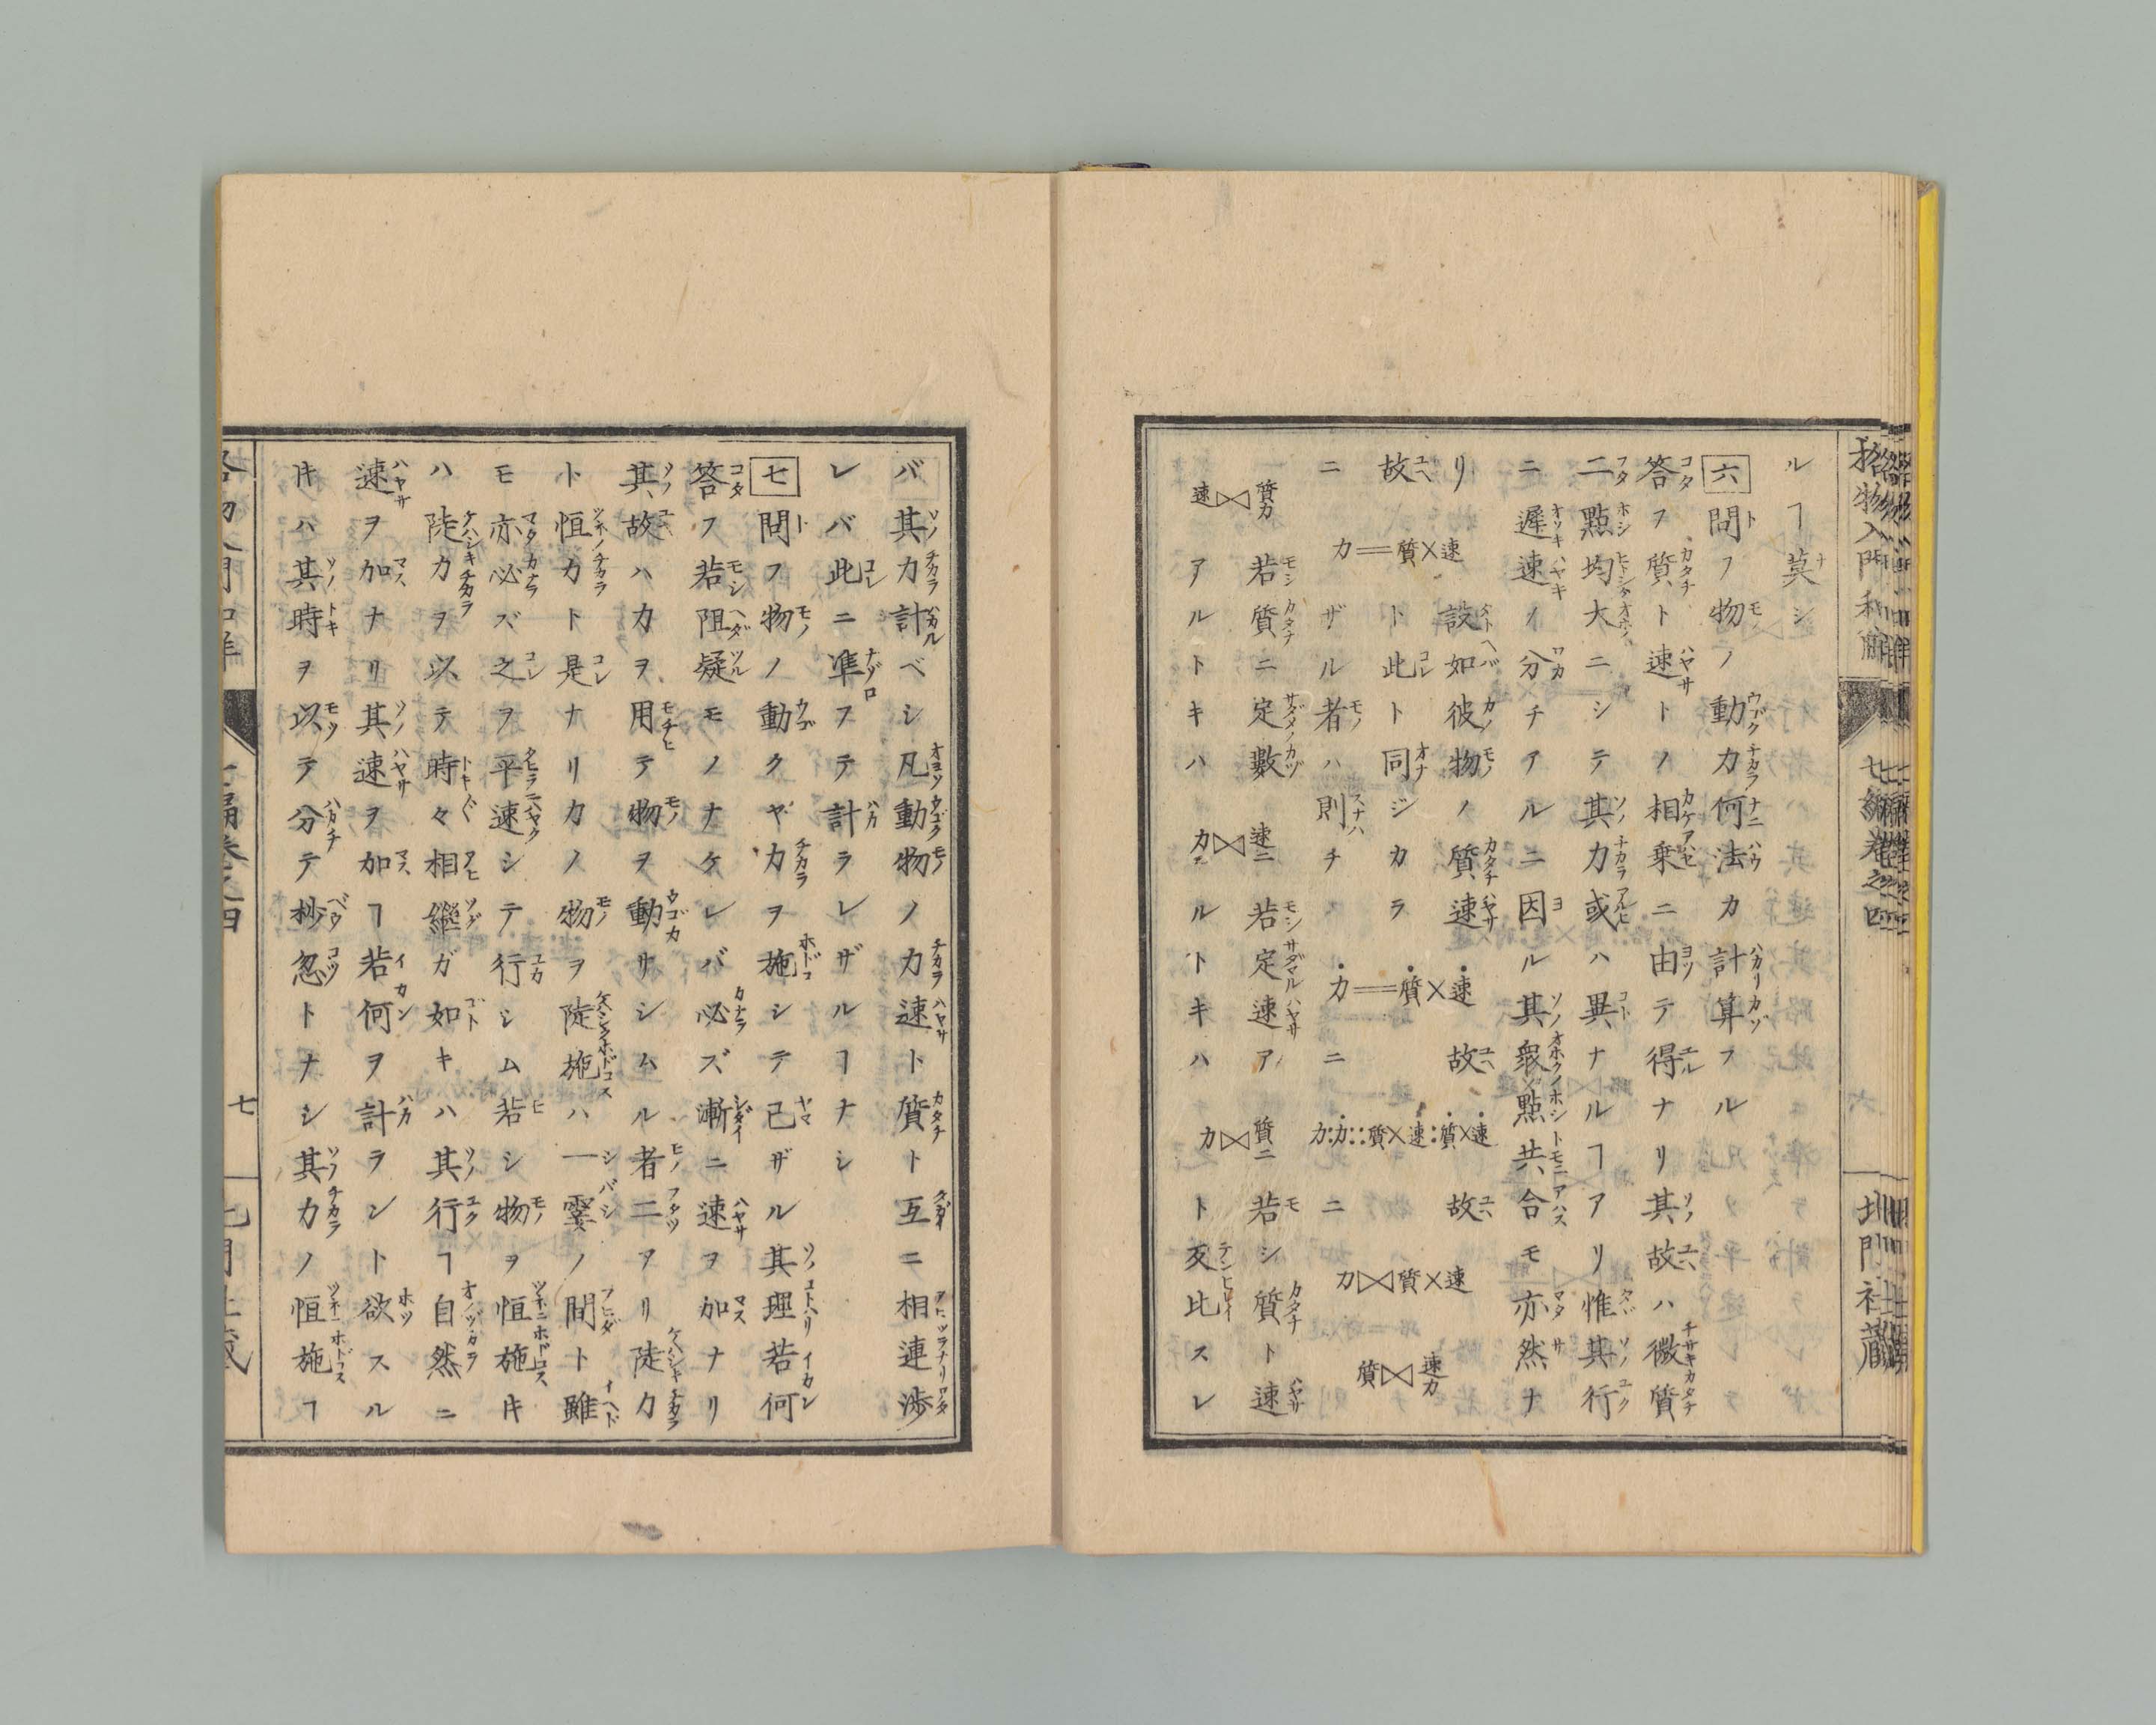 格物入門和解 七編卷之四 北門社藏
ルヿ莫シ
六 問フ物ノ動力何法カ計算フル
答フ質ト速トノ相乗ニ由テ得ナリ其故ハ微質
二點均大ニシテ其力或ハ異ナルヿアリ惟其行
ニ遲速ノ分チアルニ因ル其衆點共合モ亦然ナ
リ 設如彼物ノ質速 故 力∶力∷質×速∶質×速 故
力＝質×速 ト此ト同ジカラ 力＝質×速 力⋈質×速
故ニザル者ハ則チ ニ ニ 質⋈速力
速⋈質力 若質ニ定數 力⋈速ニ 若定速ア 力⋈質ニ 若シ質ト速
アルトキハ ルトキハ ト反比スレ
バ其力計ベシ凡動物ノ力速ト質ト互ニ相連渉
レバ此ニ凖フテ計ラレザルヿナシ
七 問フ物ノ動クヤ力ヲ施シテ已ザル其理若何
答フ若阻礙モノナケレバ必ズ漸ニ速ヲ加ナリ
其故ハ力ヲ用テ物ヲ動サシムル者二アリ陡力
ト恒力ト是ナリ力ノ物ヲ陡施ハ一霎ノ間ト雖
モ亦必ズ之ヲ平速シテ行シム若シ物ヲ恒施キ
ハ陡力ヲ以テ時々相繼ガ如キハ其行ヿ自然ニ
速ヲ加ナリ其速ヲ加ヿ若何ヲ計ラント欲スル
キハ其時ヲ以テ分テ杪忽トナシ其力ノ恒施ヿ
七